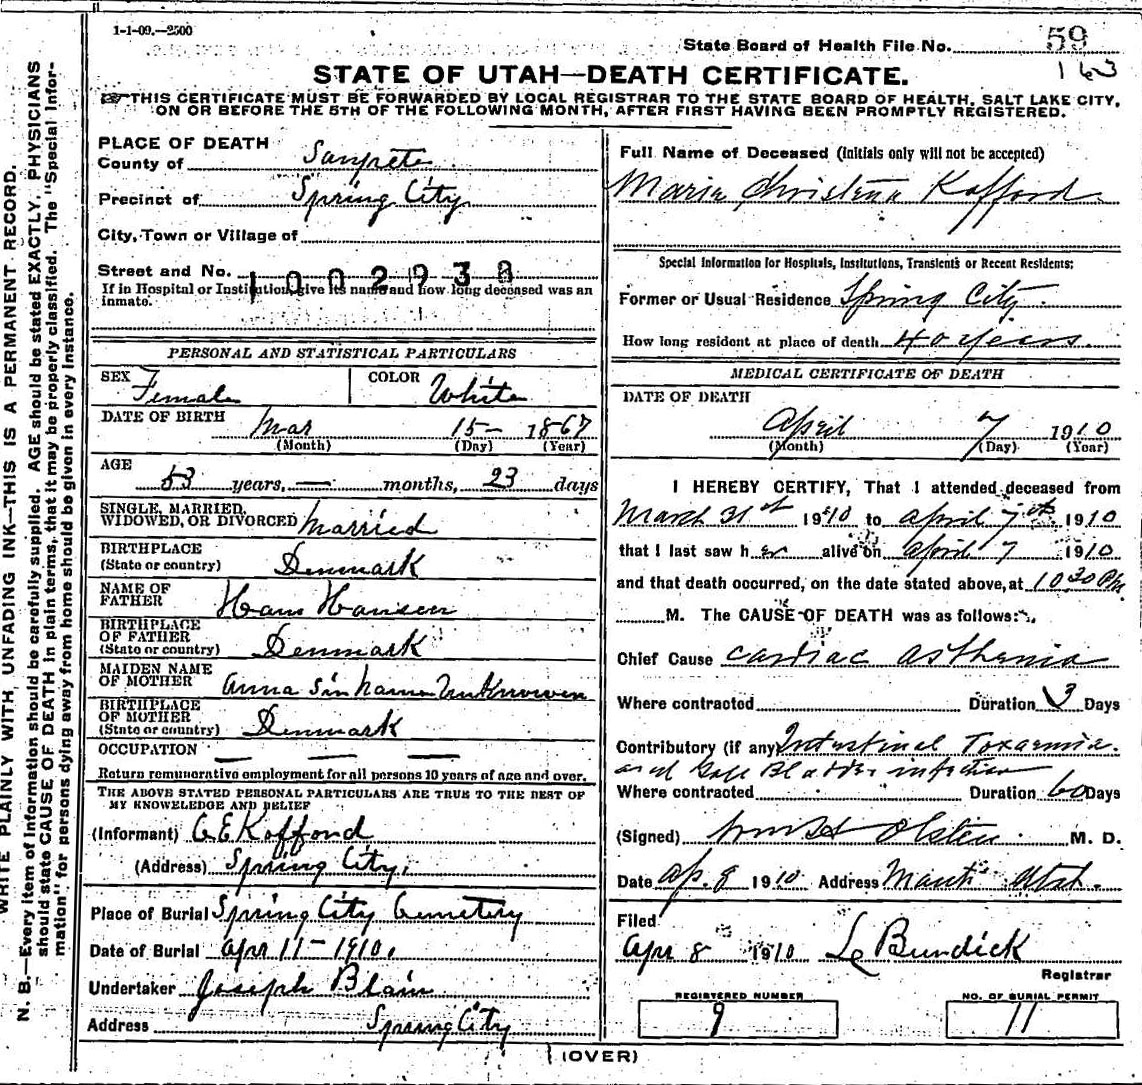 1-1-09.—2500
State Board of Health File No. 59
163
STATE OF UTAH—DEATH CERTIFICATE.
THIS CERTIFICATE MUST BE FORWARDED BY LOCAL REGISTRAR TO THE STATE BOARD OF HEALTH, SALT LAKE CITY,
ON OR BEFORE THE 5TH OF THE FOLLOWING MONTH, AFTER FIRST HAVING BEEN PROMPTLY REGISTERED.
WRITE PLAINLY WITH UNFADING INK—THIS IS A PERMANENT RECORD.
N. B.—Every item of information should be carefully supplied. AGE should be stated EXACTLY. PHYSICIANS
should state CAUSE OF DEATH in plain terms, that it may be properly classified. The "Special Infor-
mation" for persons dying away from home should be given in every instance.
PLACE OF DEATH
County of Sanpete
Precinct of Spring City
City, Town or Village of
Street and No. 1002938
If in Hospital or Institution, give its name and how long deceased was an
inmate.
PERSONAL AND STATISTICAL PARTICULARS
SEX Female COLOR White
DATE OF BIRTH Mar 15— 1867
(Month) (Day) (Year)
AGE
53 years, — months, 23 days
SINGLE, MARRIED,
WIDOWED, OR DIVORCED Married
BIRTHPLACE
(State or country) Denmark
NAME OF
FATHER Hans Hansen
BIRTHPLACE
OF FATHER
(State or country) Denmark
MAIDEN NAME
OF MOTHER Anna Sir name Unknowen
BIRTHPLACE
OF MOTHER
(State or country) Denmark
OCCUPATION — — —
Return remunerative employment for all persons 10 years of age and over.
THE ABOVE STATED PERSONAL PARTICULARS ARE TRUE TO THE BEST OF
MY KNOWELEDGE AND BELIEF
(Informant) C E Kofford
(Address) Spring City.
Place of Burial Spring City Cemetery
Date of Burial Apr 11 - 1910.
Undertaker Joseph Blain
Address Spring City
Full Name of Deceased (Initials only will not be accepted)
Maria Christena Kofford
Special Information for Hospitals, Institutions, Transients or Recent Residents:
Former or Usual Residence Spring City.
How long resident at place of death 40 years.
MEDICAL CERTIFICATE OF DEATH
DATE OF DEATH
April 7 1910
(Month) (Day) (Year)
I HEREBY CERTIFY, That I attended deceased from
March 31st 1910 to April 7th 1910
that I last saw her alive on April 7 1910
and that death occurred, on the date stated above, at 10 30 PM.
M. The CAUSE OF DEATH was as follows:
Chief Cause Cardiac Asthenia
Where contracted Duration 3 Days
Contributory (if any) Intestinal Toxaemia
and Gall Bladder infection
Where contracted Duration 60 Days
(Signed) Olsten M. D.
Date Ap. 8 1910 Address Manti Utah.
Filed
Apr 8 1910 L Burdick
Registrar
REGISTERED NUMBER
9
NO. OF BURIAL PERMIT
11
(OVER)